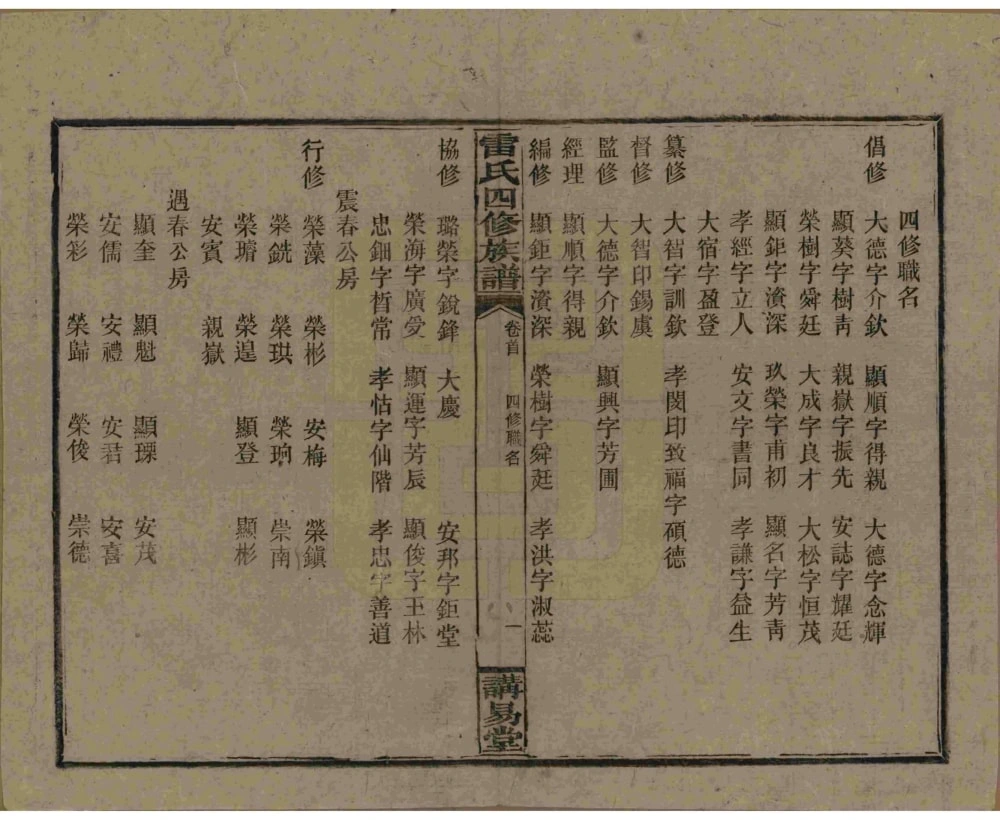 四修職名
倡修 大德字介欽 顯順字得親 大德字念輝
顯葵字樹靑 親嶽字振先 安誌字耀廷
榮樹字舜廷 大成字良才 大松字恒茂
顯鉅字濱深 玖榮字甫初 顯名字芳靑
孝經字立人 安文字書同 孝謙字益生
大宿字盈登
纂修 大智字訓欽 孝閔印致福字碩德
督修 大智印錫虞
監修 大德字介欽 顯興字芳圃
經理 顯順字得親
編修 顯鉅字濱深 榮樹字舜廷 孝洪字淑蕊
雷氏四修族譜 卷首 四修職名 一 講易堂
協修 璐榮字銳鋒 大慶 安邦字鉅堂
榮海字廣受 顯運字芳辰 顯俊字玉林
忠鈿字晢常 孝怙字仙階 孝忠字善道
震春公房
行修 榮藻 榮彬 安梅 榮鎭
榮銑 榮珙 榮珦 崇南
榮瑃 榮遑 顯登 顯彬
安賓 親嶽
遇春公房
顯奎 顯魁 顯瑮 安茂
安儒 安禮 安君 安喜
榮彩 榮歸 榮俊 崇德